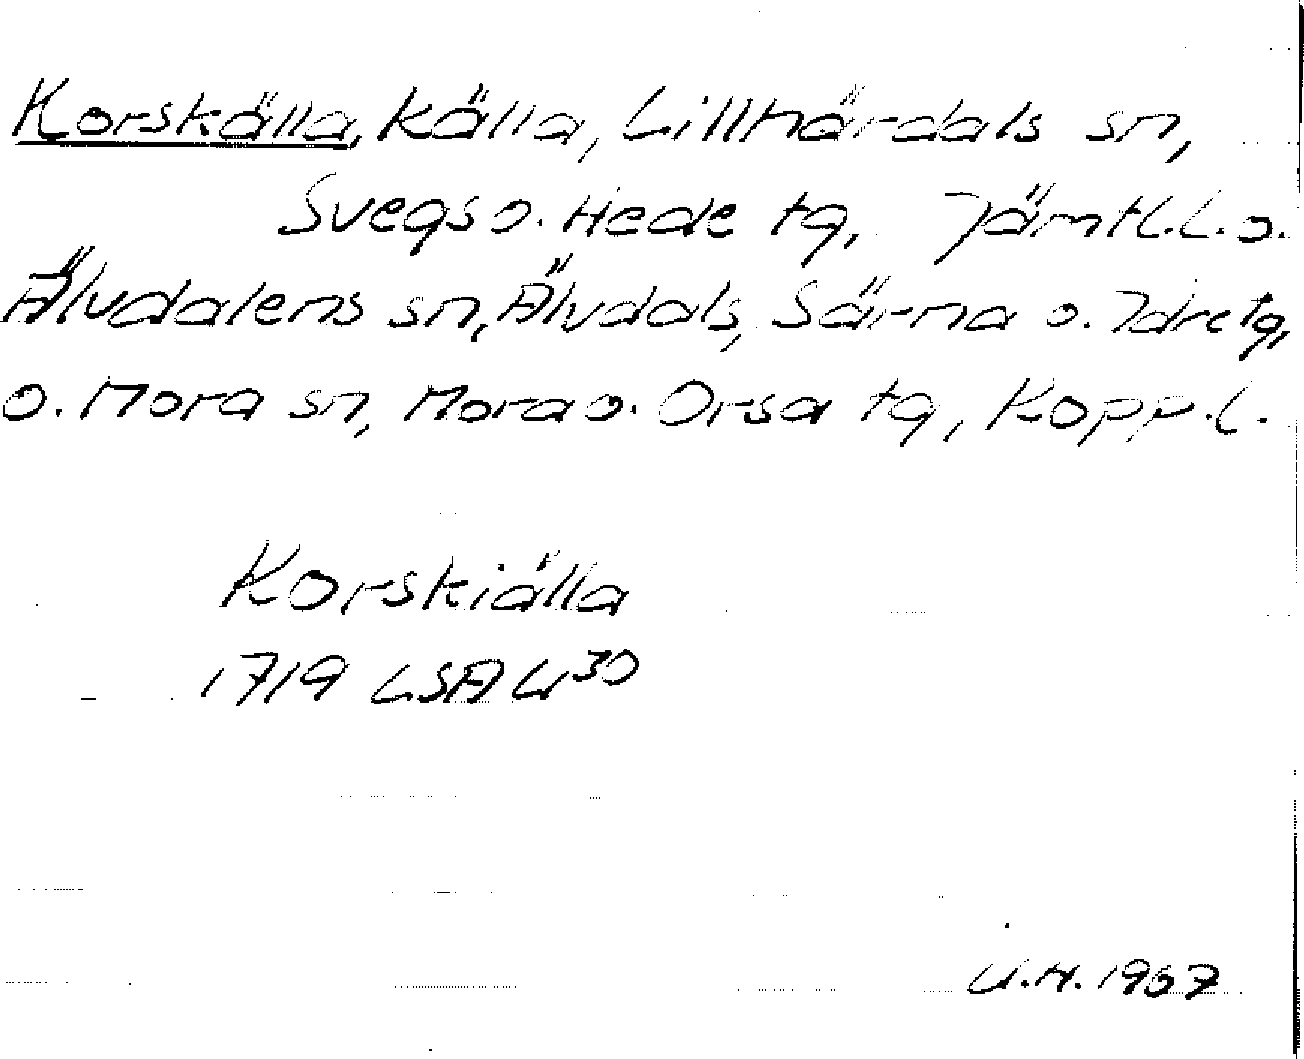 Korskälla, källa, Lillhärdals sn,
Svegs o. Hede tg, Jämtl. L. o.
Älvdalens sn, Älvdals, Särna o. Idre tg,
o. Mora sn, Mora o. Orsa tg, Kopp. L.
Korskiälla
1719 LSA W30
U.H. 1967